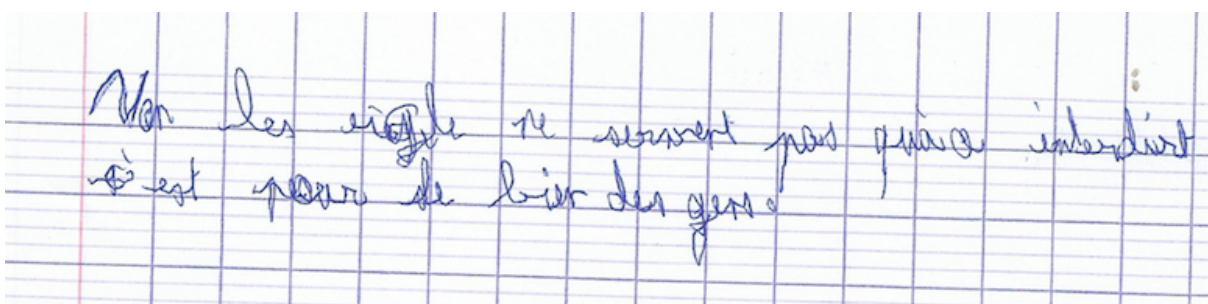 Non les rigle ne servent pas qu'à interdirt
c'est pour le bien des gens.